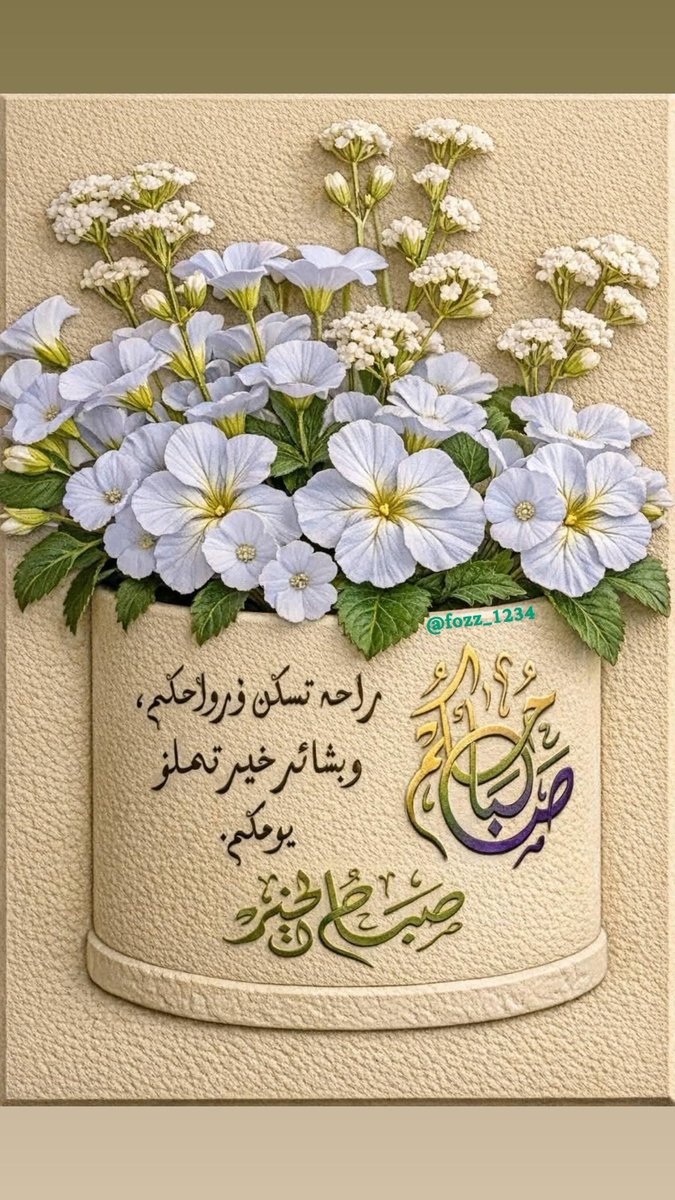 @fozz_1234
صَبَاحُكُم
راحه تسكن ٯرواحكم،
وبشائر خير تملؤ
يومكم.
صباح الخير